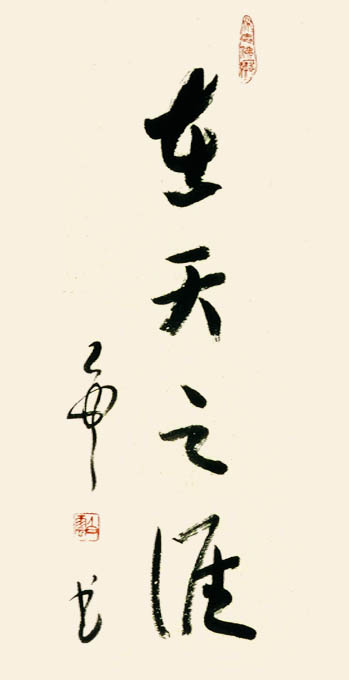 在天之涯
书